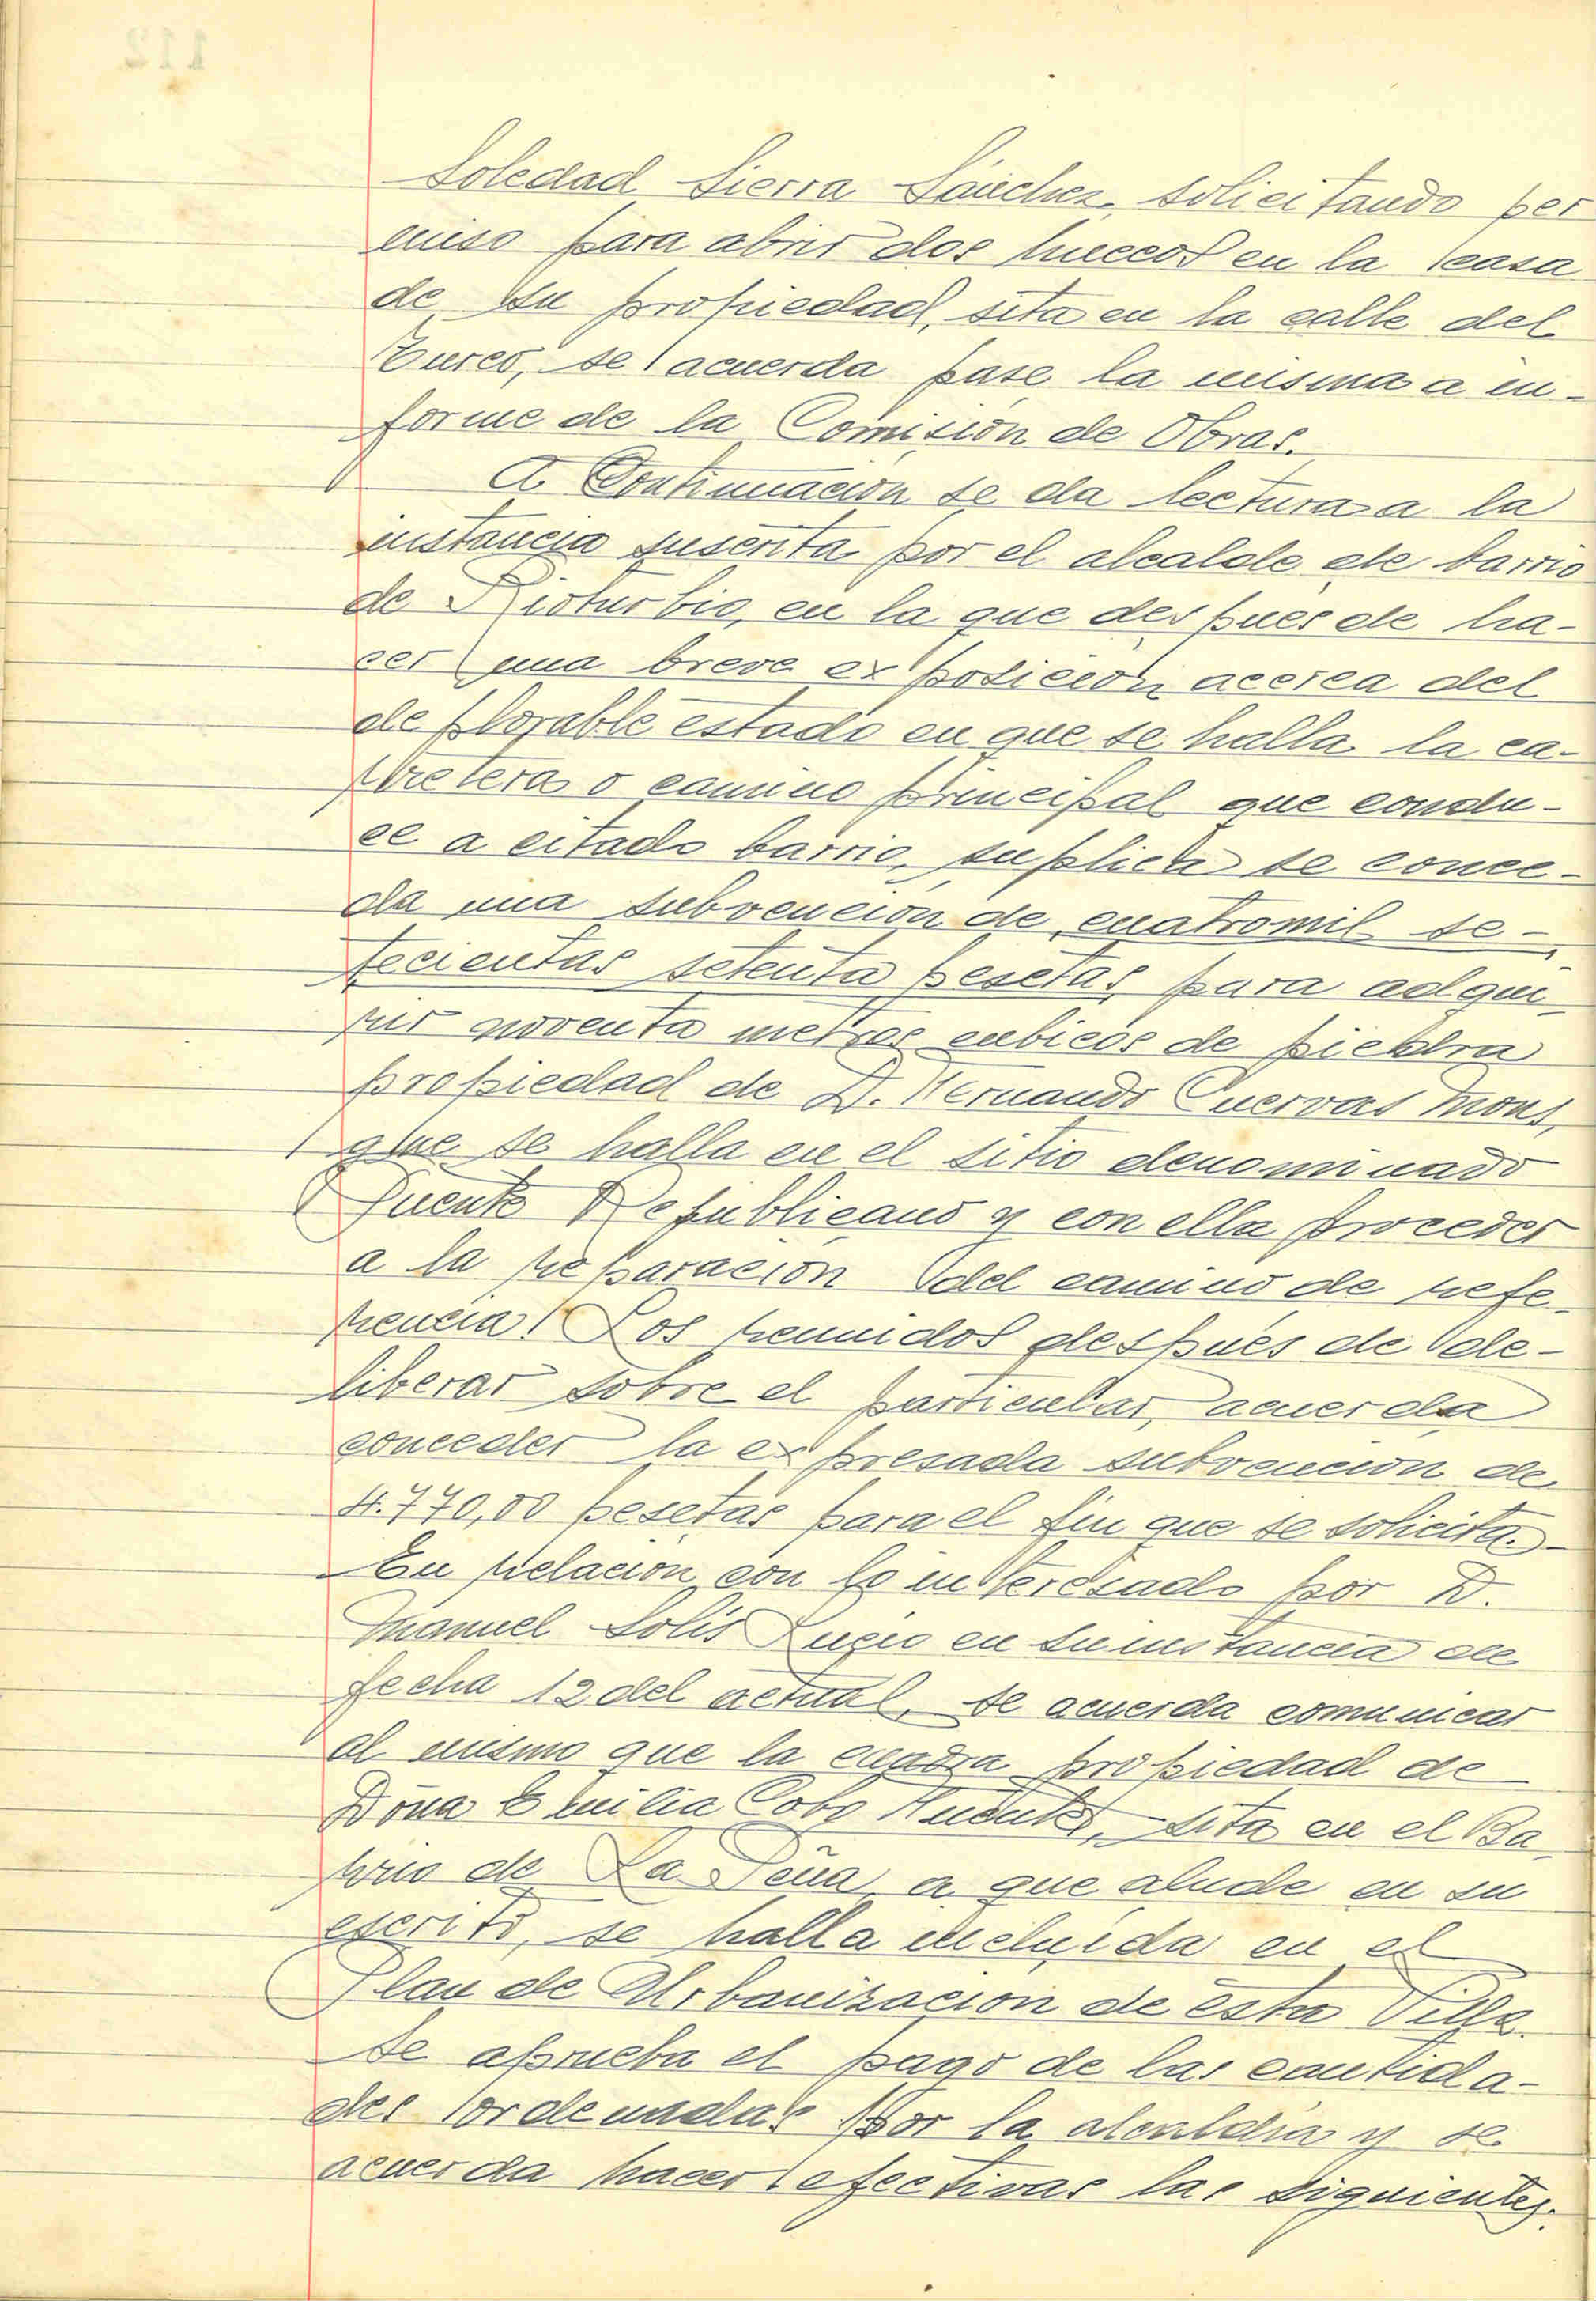 Soledad Sierra Sánchez, solicitando per
miso para abrir dos huecos en la casa
de su propiedad, sita en la calle del
Turco, se acuerda pase la misma a in-
forme de la Comisión de Obras.
A Continuación se da lectura a la
instancia suscrita por el alcalde de barrio
de Rioturbio, en la que despues de ha-
cer una breve exposición acerca del
deplorable estado en que se halla la ca-
rretera o camino principal que condu-
ce a citado barrio, suplica se conce-
da una subvención de cuatromil se-
tecientas setenta pesetas para adqui-
rir noventa metros cubicos de piedra
propiedad de D. Hernando Cuervas Mons,
que se halla en el sitio denominado
Puente Republicano y con ella proceder
a la reparación del camino de refe-
rencia. Los reunidos después de de-
liberar sobre el particular, acuerda
conceder la expresada subvención de
4.770,00 pesetas para el fin que se solicita.-
En relación con lo interesado por D.
Manuel Solís Lucio en su instancia de
fecha 12 del actual, se acuerda comunicar
al mismo que la cuadra propiedad de
Doña Emilia Cobo sita en el Ba-
rrio de La Peña a que alude en su
escrito, se halla incluída en el
Plan de Urbanización de esta Villa.
Se aprueba el pago de las cantida-
des ordenadas por la alcaldía y se
acuerda hacer efectivas las siguientes.
112